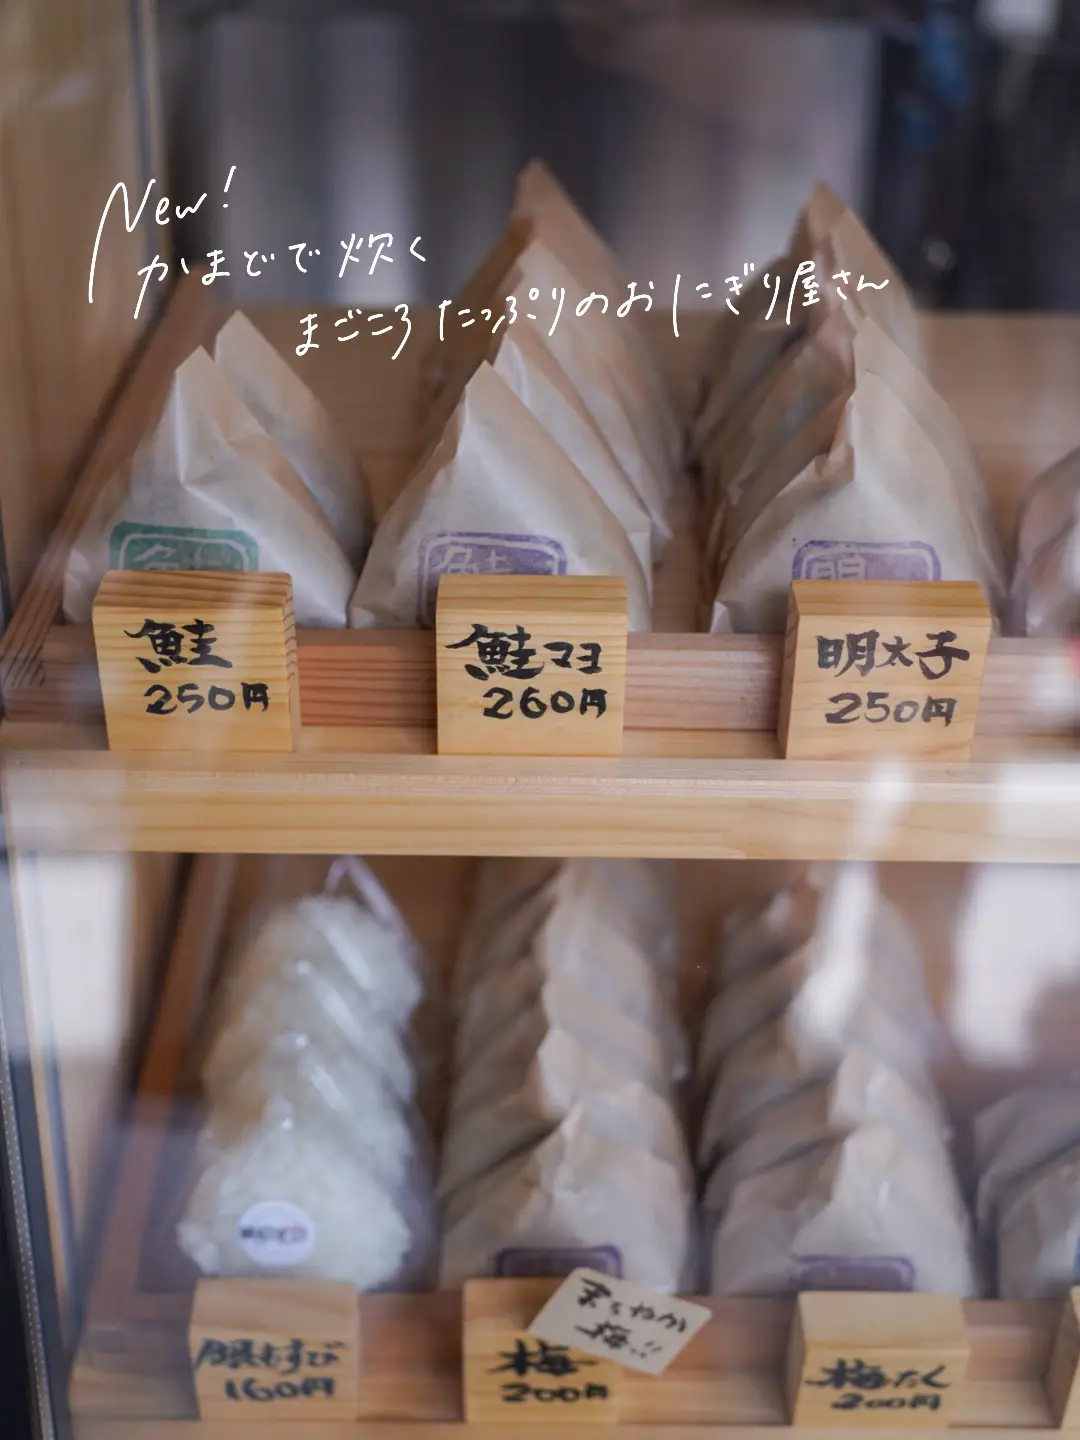 New!
かまどで炊く
まごころたっぷりのおにぎり屋さん
鮭
鮭
明
鮭
250円
鮭マヨ
260円
明太子
250円
銀むすび
160円
まろやか
梅!!
梅
200円
梅たく
200円